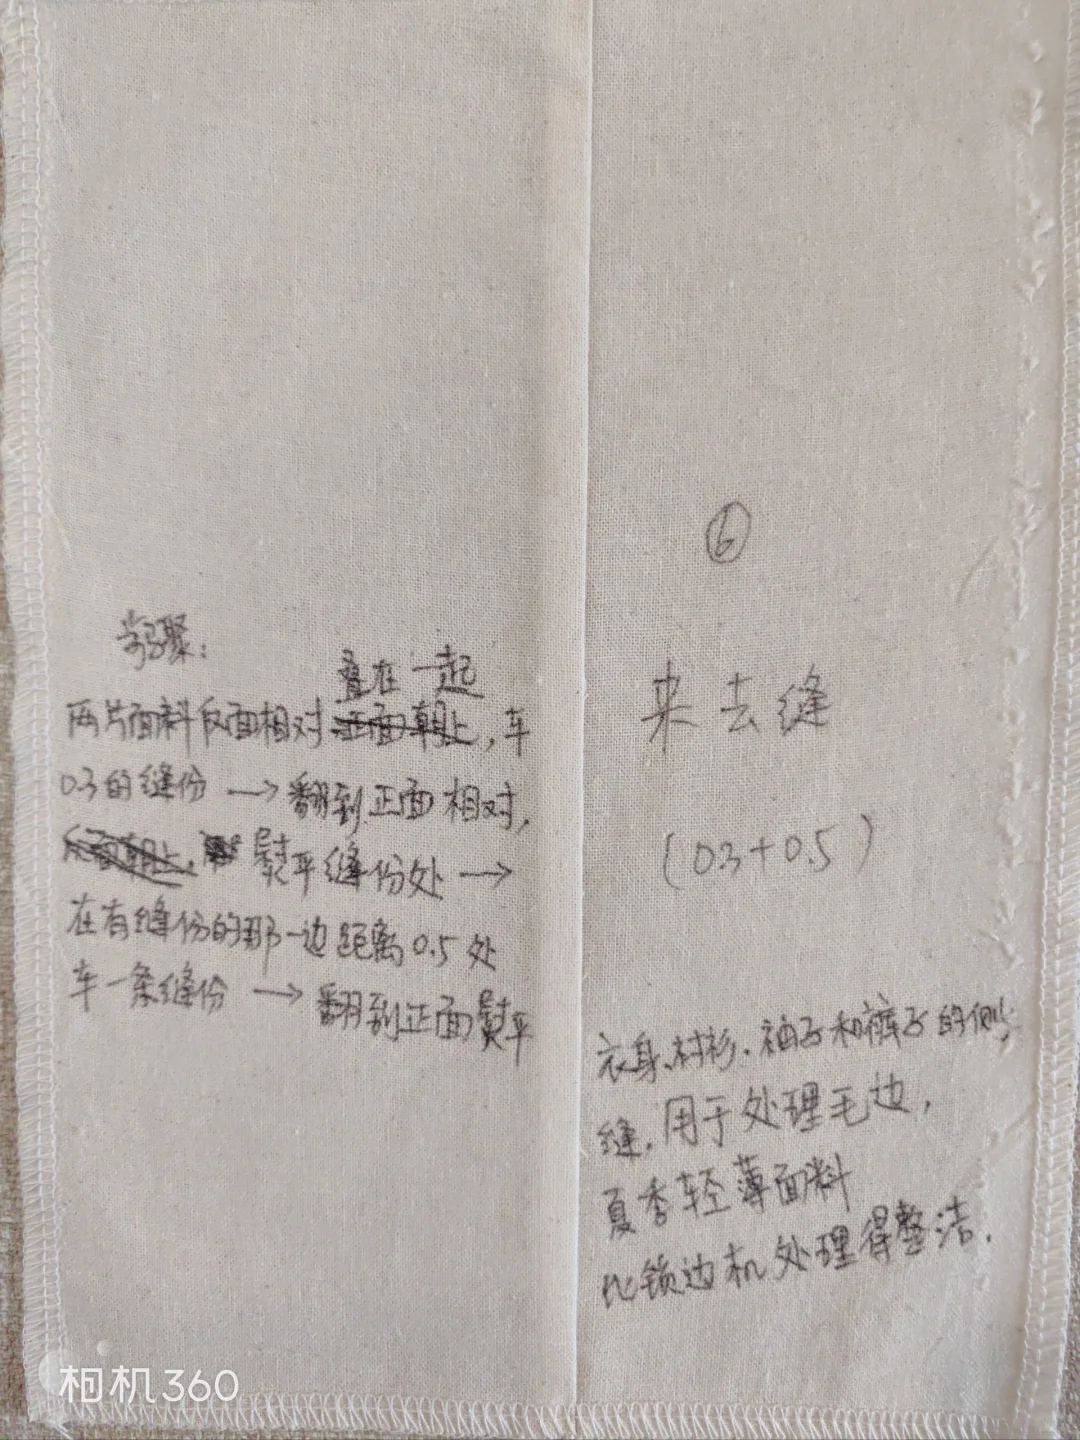 步骤：
叠在一起
两片面料反面相对正面朝上，车
0.3的缝份 → 翻到正面相对，
反面朝上， 熨平缝份处 →
在有缝份的那一边距离0.5处
车一条缝份 → 翻到正面熨平
⑥
来去缝
(0.3+0.5)
衣身、衬衫、袖子和裤子的侧
缝，用于处理毛边，
夏季轻薄面料
比锁边机处理得整洁．
相机360